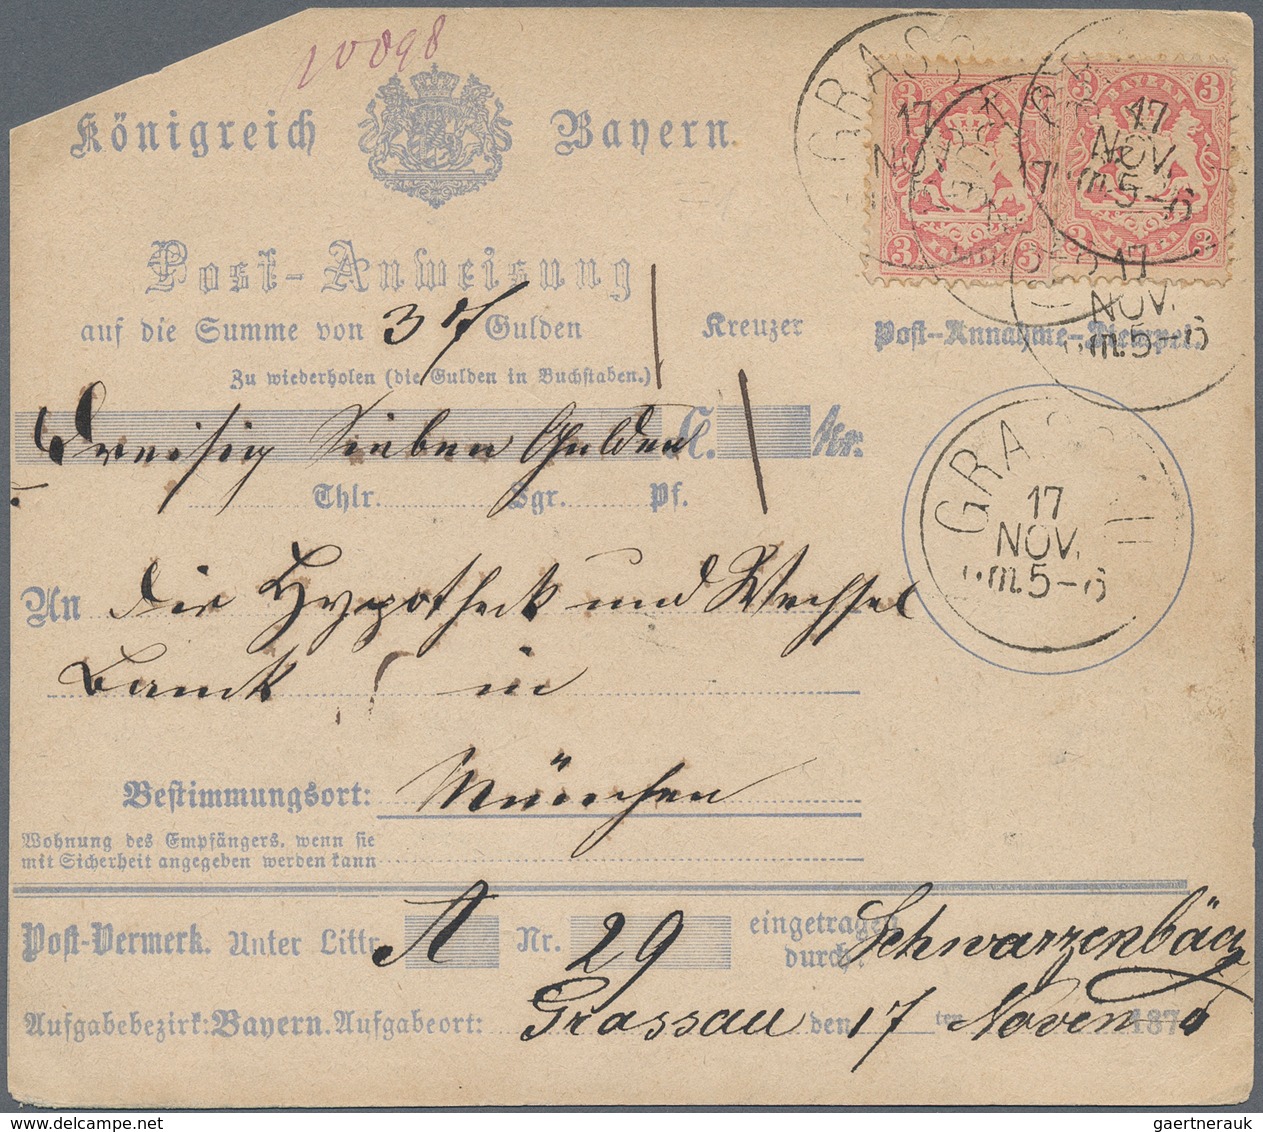 10098
Königreich Bayern.
Post-Anweisung
auf die Summe von 37 Gulden Kreuzer Post-Annahme-Stempel.
Zu wiederholen (die Gulden in Buchstaben.)
Dreisig Sieben Gulden fl. kr.
Thlr. Sgr. Pf.
An die Hypotheck und Wechsel
Bank in
Bestimmungsort: München
Wohnung des Empfängers, wenn sie
mit Sicherheit angegeben werden kann
Post-Vermerk. Unter Littr. A Nr. 29 eingetragen
durch: Schwarzenbäch
Aufgabebezirk: Bayern. Aufgabeort: Grassau den 17 ten Novem 187
3 BAYERN 3
3 KREUZER 3
3 BAYERN 3
GRASSAU
17
NOV.
5-6
17
NOV.
5-6
17
NOV.
5-6
GRASS
17
NOV.
5-6
gaertnerauk